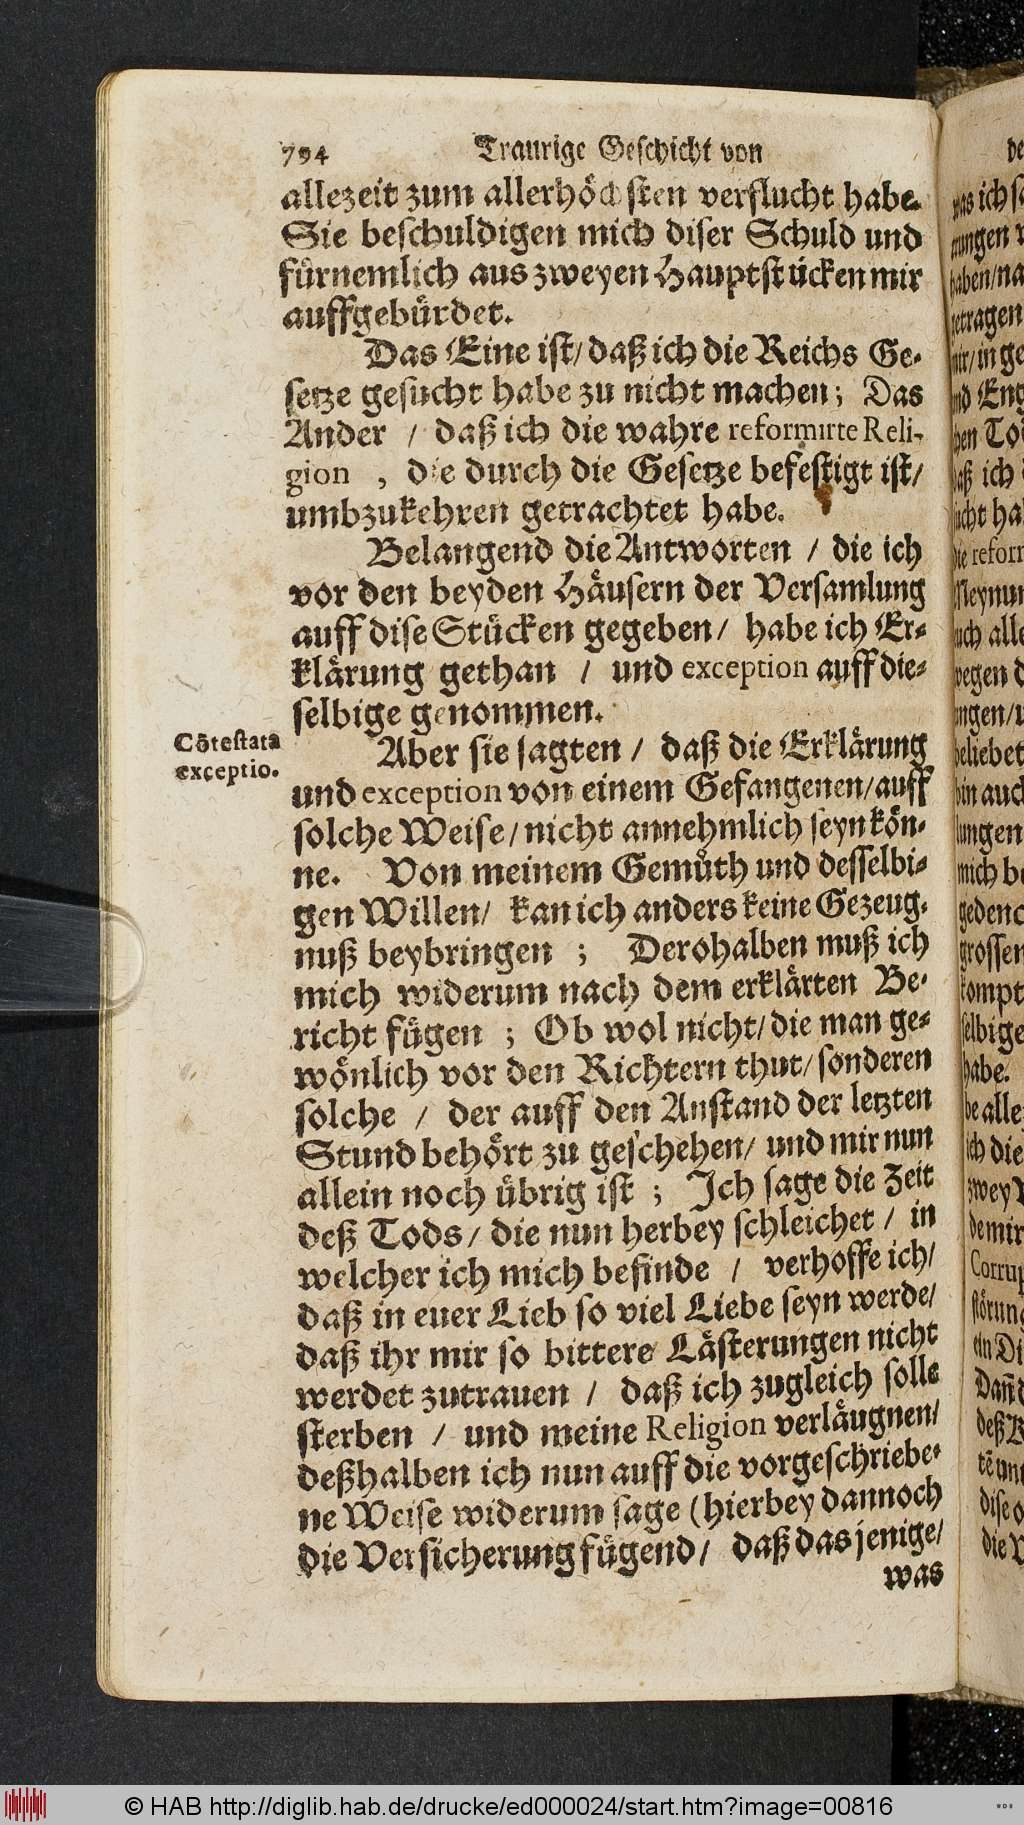 794 Traurige Geschicht von
allezeit zum allerhöchsten verflucht habe.
Sie beschuldigen mich diser Schuld und
fürnemlich aus zweyen Hauptstücken mir
auffgebürdet.
Das Eine ist/ daß ich die Reichs Ge-
setze gesucht habe zu nicht machen; Das
Ander / daß ich die wahre reformirte Reli-
gion , die durch die Gesetze befestigt ist/
umbzukehren getrachtet habe.
Belangend die Antworten / die ich
vor den beyden Häusern der Versamlung
auff dise Stücken gegeben/ habe ich Er-
klärung gethan / und exception auff die-
selbige genommen.
Cōtestata
exceptio.
Aber sie sagten / daß die Erklärung
und exception von einem Gefangenen/ auff
solche Weise/ nicht annehmlich seyn kön-
ne. Von meinem Gemüth und desselbi-
gen Willen/ kan ich anders keine Gezeug-
nuß beybringen ; Derohalben muß ich
mich widerum nach dem erklärten Be-
richt fügen ; Ob wol nicht/ die man ge-
wönlich vor den Richtern thut/ sonderen
solche / der auff den Anstand der letzten
Stund behört zu geschehen/ und mir nun
allein noch übrig ist ; Ich sage die Zeit
deß Tods/ die nun herbey schleichet / in
welcher ich mich befinde / verhoffe ich/
daß in euer Lieb so viel Liebe seyn werde/
daß ihr mir so bittere Lästerungen nicht
werdet zutrauen / daß ich zugleich solle
sterben / und meine Religion verläugnen/
deßhalben ich nun auff die vorgeschriebe-
ne Weise widerum sage (hierbey dannoch
die Versicherung fügend/ daß das jenige/
was
© HAB http://diglib.hab.de/drucke/ed000024/start.htm?image=00816